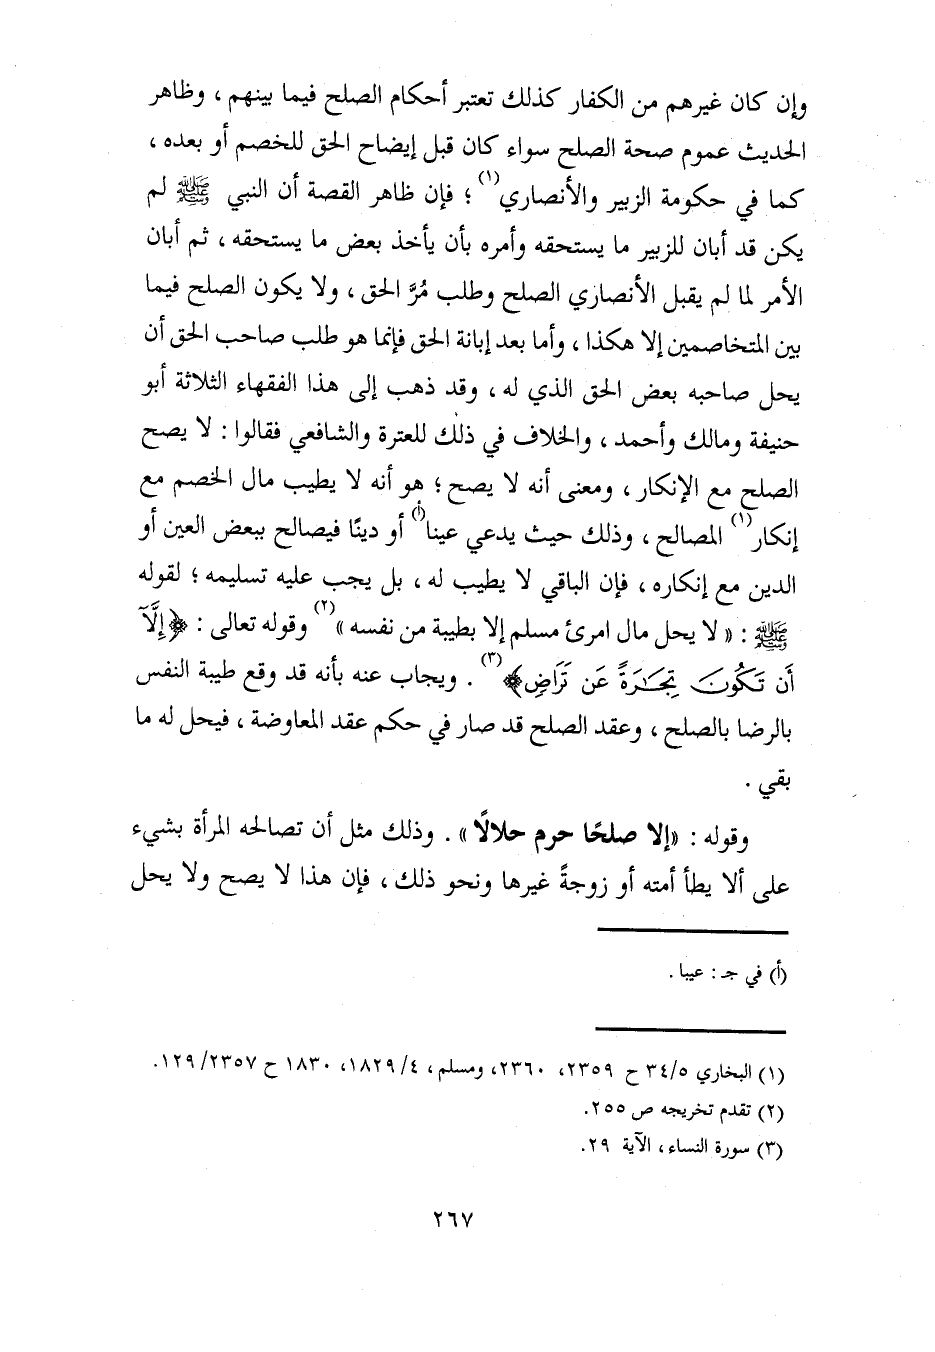 وإن كان غيرهم من الكفار كذلك تعتبر أحكام الصلح فيما بينهم ، وظاهر
الحديث عموم صحة الصلح سواء كان قبل إيضاح الحق للخصم أو بعده ،
كما في حكومة الزبير والأنصاري(١) ؛ فإن ظاهر القصة أن النبي ﷺ لم
يكن قد أبان للزبير ما يستحقه وأمره بأن يأخذ بعض ما يستحقه ، ثم أبان
الأمر لما لم يقبل الأنصاري الصلح وطلب مُرَّ الحق ، ولا يكون الصلح فيما
بين المتخاصمين إلا هكذا ، وأما بعد إبانة الحق فإنما هو طلب صاحب الحق أن
يحل صاحبه بعض الحق الذي له ، وقد ذهب إلى هذا الفقهاء الثلاثة أبو
حنيفة ومالك وأحمد ، والخلاف في ذلك للعترة والشافعي فقالوا : لا يصح
الصلح مع الإنكار ، ومعنى أنه لا يصح ؛ هو أنه لا يطيب مال الخصم مع
إنكار(١) المصالح ، وذلك حيث يدعي عينا(أ) أو دينًا فيصالح ببعض العين أو
الدين مع إنكاره ، فإن الباقي لا يطيب له ، بل يجب عليه تسليمه ؛ لقوله
ﷺ : « لا يحل مال امرئ مسلم إلا بطيبة من نفسه »(٢) وقوله تعالى : ﴿إِلَّآ
أَن تَكُونَ تِجَٰرَةً عَن تَرَاضٍ﴾(٣) . ويجاب عنه بأنه قد وقع طيبة النفس
بالرضا بالصلح ، وعقد الصلح قد صار في حكم عقد المعاوضة ، فيحل له ما
بقي .
وقوله : «إلا صلحًا حرم حلالًا » . وذلك مثل أن تصالحه المرأة بشيء
على ألا يطأ أمته أو زوجةً غيرها ونحو ذلك ، فإن هذا لا يصح ولا يحل
(أ) في جـ : عيبا .
(١) البخاري ٣٤/٥ ح ٢٣٥٩، ٢٣٦٠، ومسلم، ٤/ ١٨٢٩، ١٨٣٠ ح ٢٣٥٧/ ١٢٩.
(٢) تقدم تخريجه ص ٢٥٥.
(٣) سورة النساء، الآية ٢٩.
٢٦٧